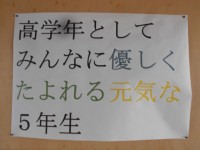 高学年として
みんなに優しく
たよれる元気な
５年生